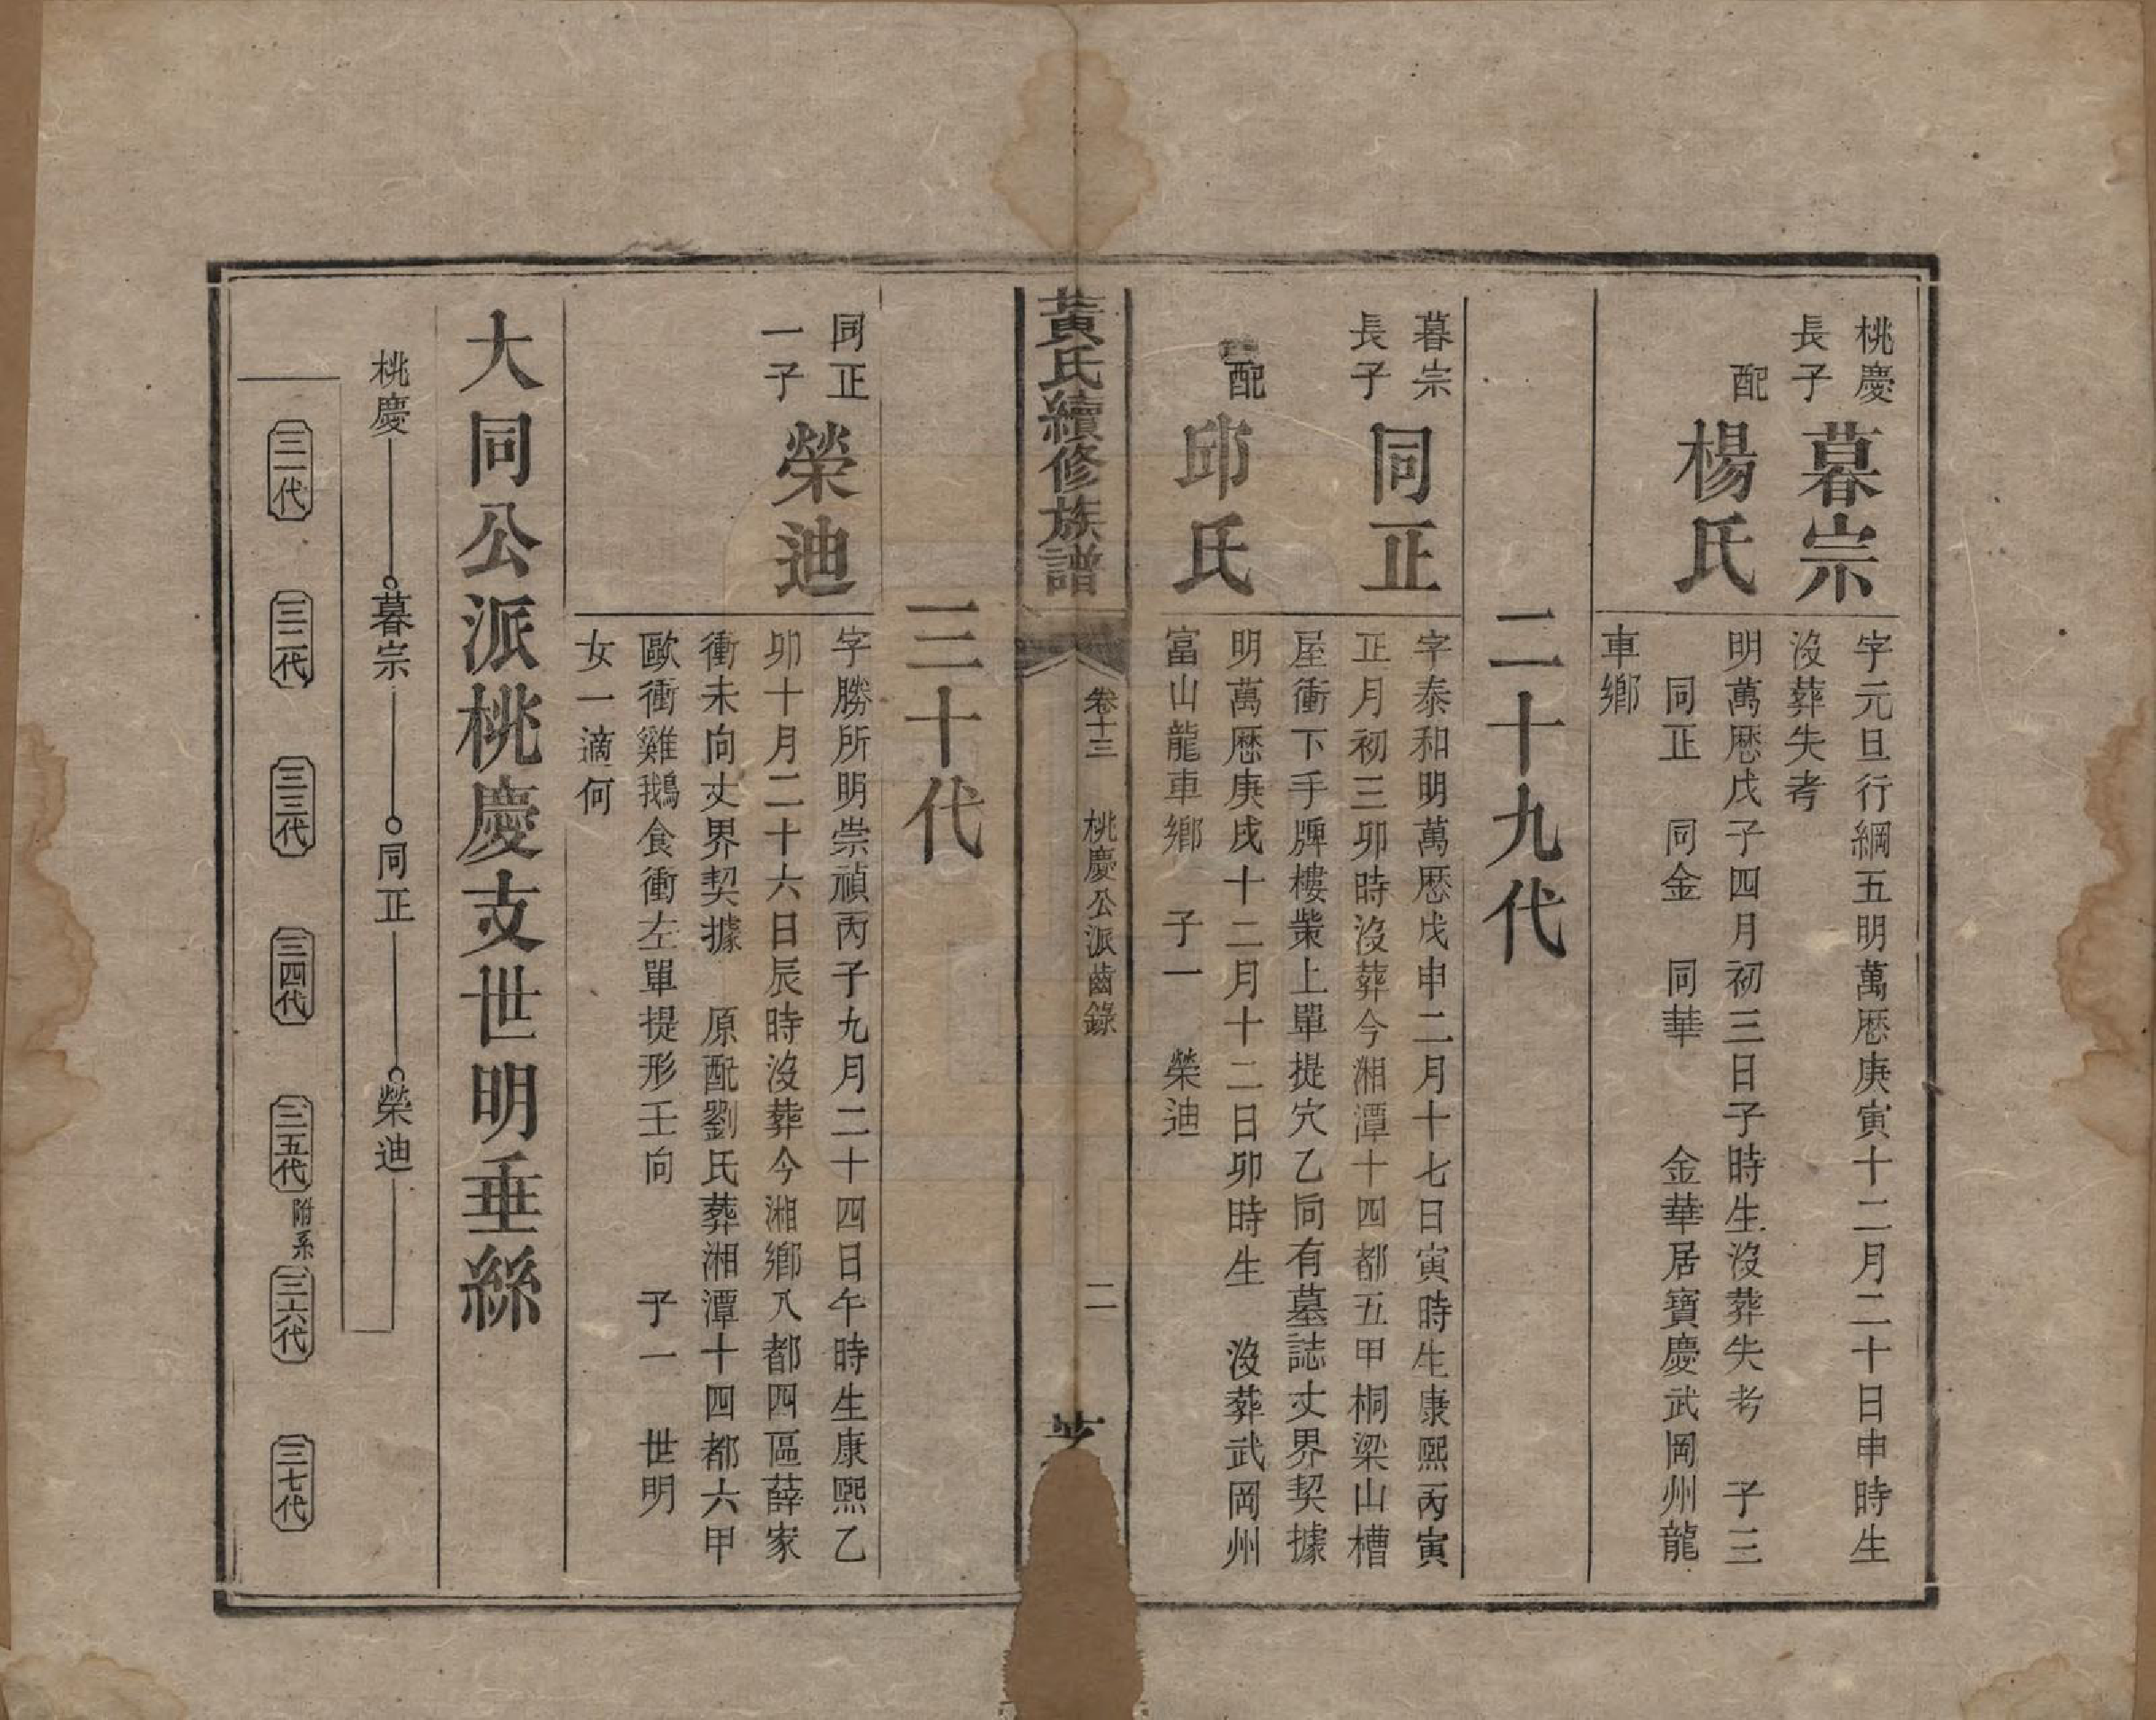 桃慶
長子
暮宗
字元旦行綱五明萬厯庚寅十二月二十日申時生
沒葬失考
配
楊氏
明萬厯戊子四月初三日子時生沒葬失考 子三
同正 同金 同華 金華居寶慶武岡州龍
車鄉
二十九代
暮宗
長子
同正
字泰和明萬厯戊申二月十七日寅時生康熙丙寅
正月初三卯時沒葬今湘潭十四都五甲桐梁山槽
屋衝下手牌樓䉼上單提穴乙向有墓誌丈界契據
配
邱氏
明萬厯庚戌十二月十二日卯時生 沒葬武岡州
富山龍車鄉 子一 榮迪
黃氏續修族譜
卷十三
桃慶公派齒錄
二
三十代
同正
一子
榮迪
字勝所明崇禎丙子九月二十四日午時生康熙乙
卯十月二十六日辰時沒葬今湘鄉八都四區薛家
衝未向丈界契據 原配劉氏葬湘潭十四都六甲
歐衝雞鵝食衝左單提形壬向 子一 世明
女一適何
大同公派桃慶支世明垂絲
桃慶 暮宗 同正 榮迪
三一代 三二代 三三代 三四代 三五代 附系 三六代 三七代